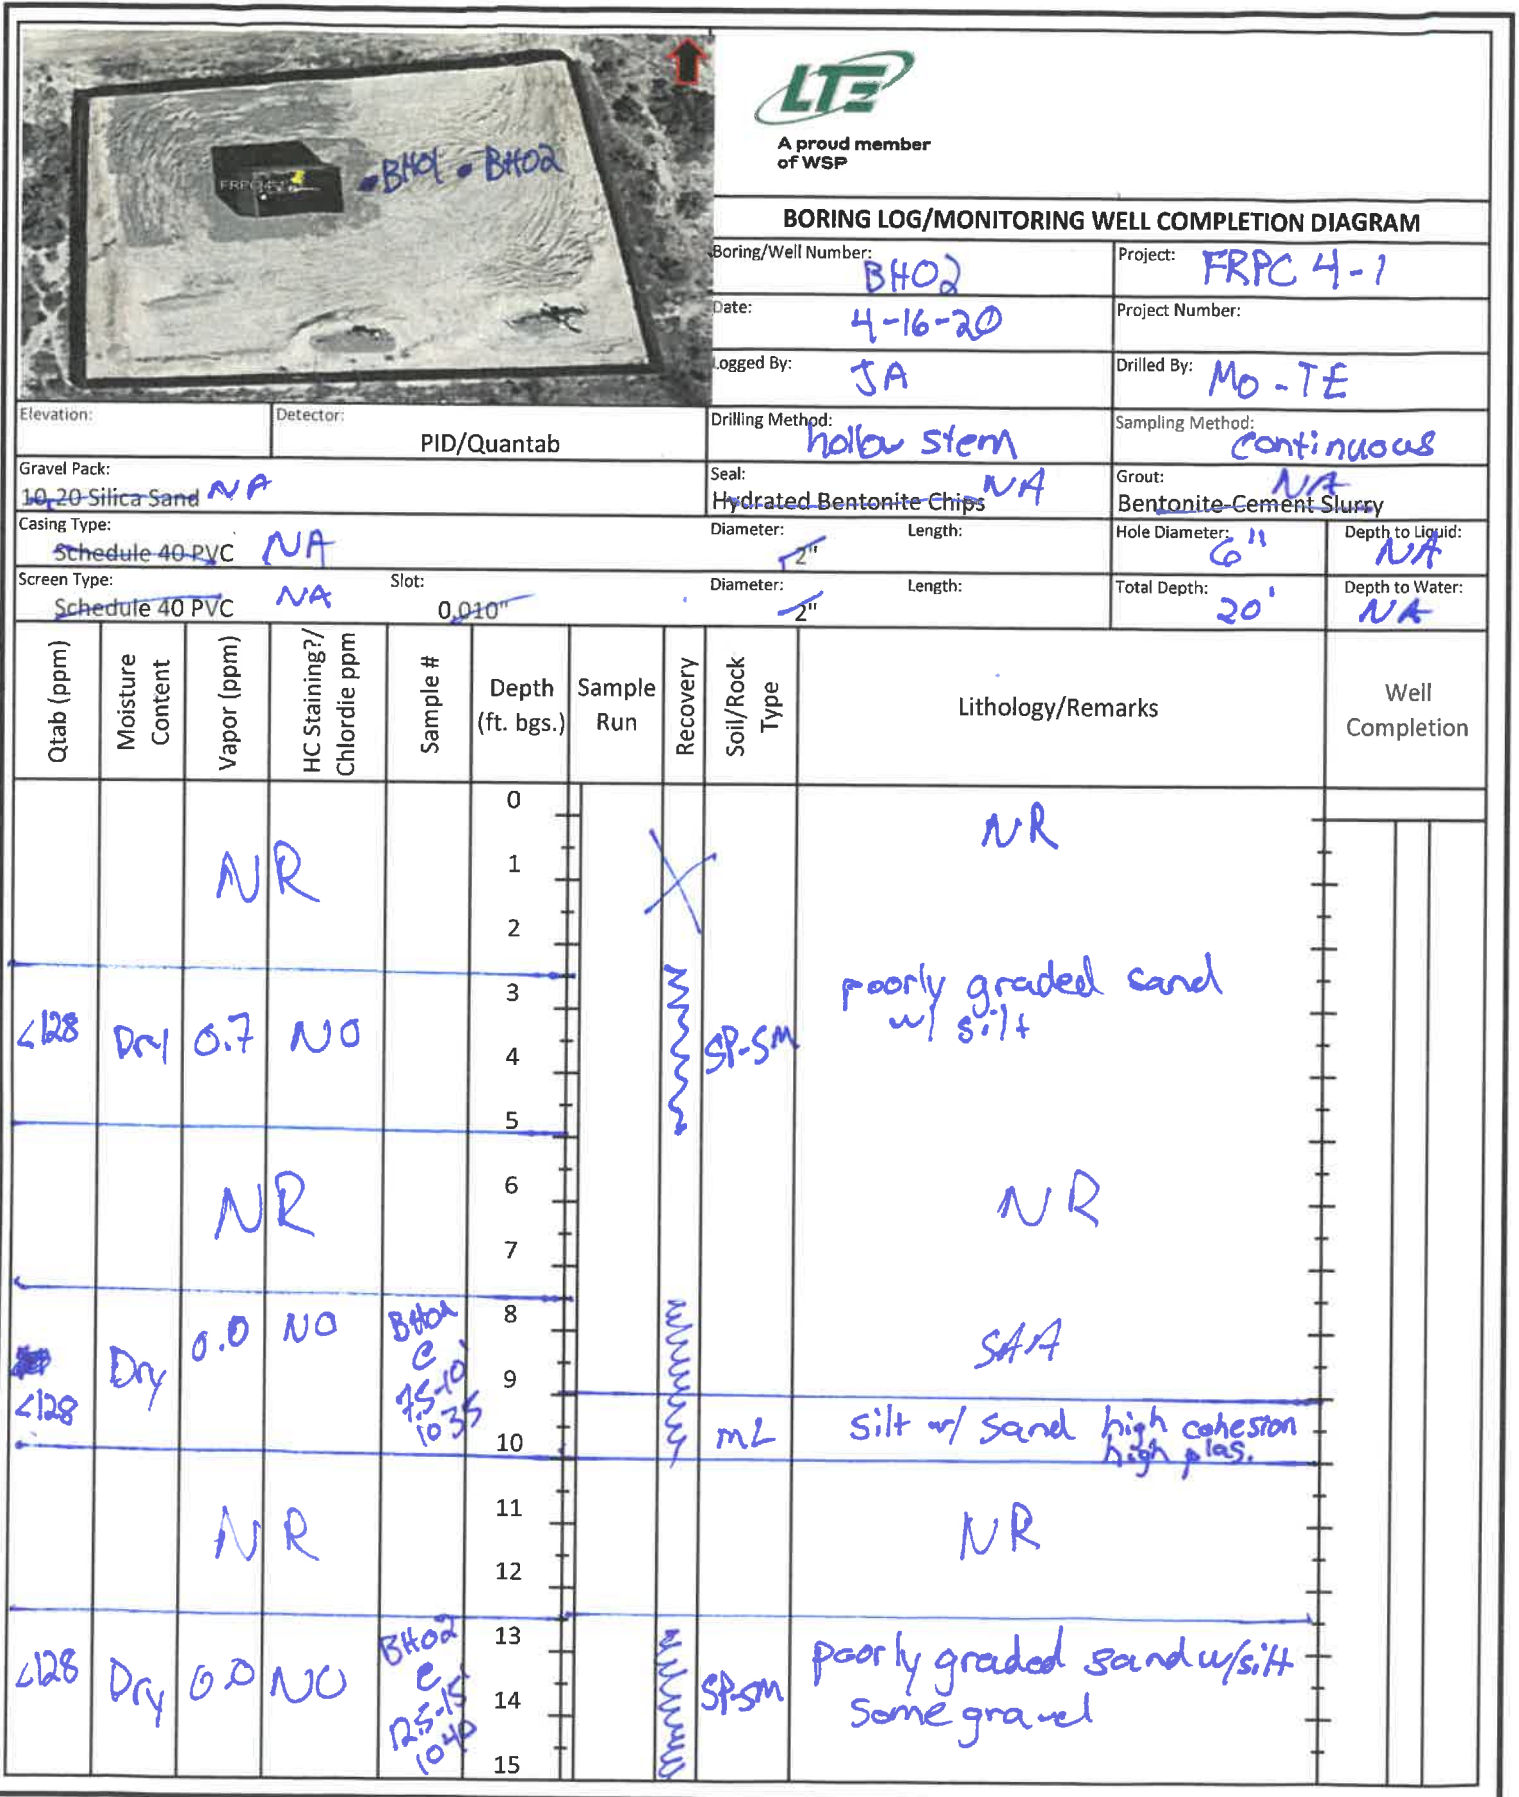 BH01 BH02
LTE
A proud member
of WSP
BORING LOG/MONITORING WELL COMPLETION DIAGRAM
Boring/Well Number: BH02
Project: FRPC 4-1
Date: 4-16-20
Project Number:
Logged By: JA
Drilled By: MO-TE
Elevation:
Detector: PID/Quantab
Drilling Method: hollow stem
Sampling Method: continuous
Gravel Pack:
10,20 Silica Sand NA
Seal: NA
Hydrated Bentonite Chips
Grout: NA
Bentonite-Cement Slurry
Casing Type:
Schedule 40 PVC NA
Diameter: 2"
Length:
Hole Diameter: 6"
Depth to Liquid: NA
Screen Type:
Schedule 40 PVC NA
Slot: 0.010"
Diameter: 2"
Length:
Total Depth: 20'
Depth to Water: NA
Qtab (ppm)
Moisture Content
Vapor (ppm)
HC Staining?/ Chlordie ppm
Sample #
Depth (ft. bgs.)
Sample Run
Recovery
Soil/Rock Type
Lithology/Remarks
Well Completion
0
NR
NR
1
2
poorly graded sand
w/ silt
3
<128 Dry 0.7 NO SP-SM
4
5
6
NR
NR
7
8
0.0 NO
SAA
<128 Dry
7.5-10'
1035
9
mL silt w/ sand high cohesion
high plas.
10
11
NR
NR
12
13
BH02
@
12.5-15'
1040
<128 Dry 0.0 NO SP-SM
poorly graded sand w/silt
some gravel
14
15